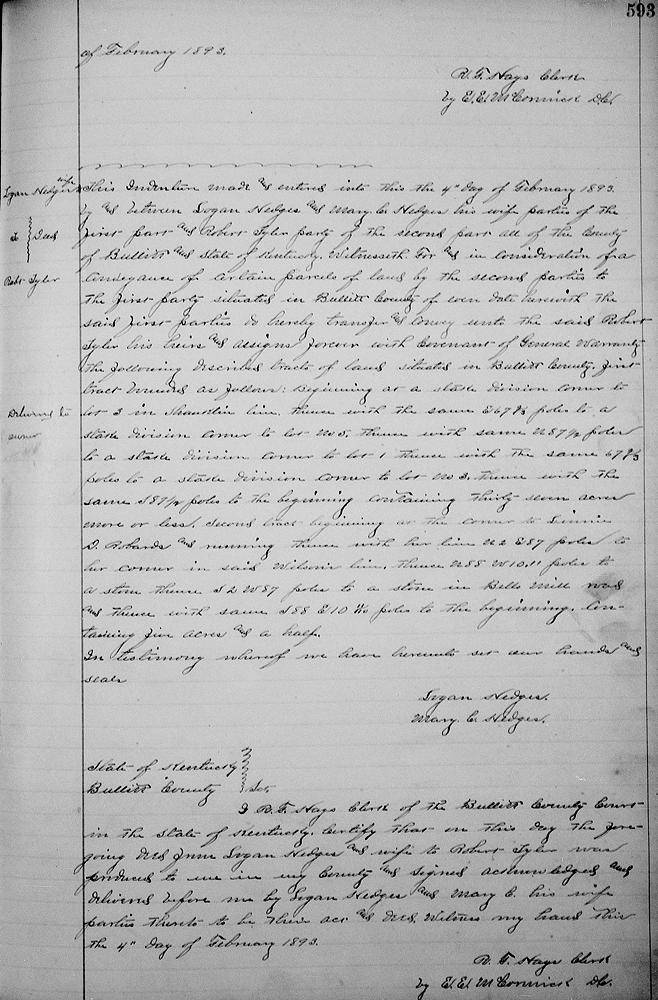 593
of February 1893.
R. F. Hays Clerk
by E. E. McCormick D.C.
Logan Hedges wife
to } Deed
Robt Tyler
Delivered to
owner
This Indenture made and entered into this the 4" day of February 1893.
by and between Logan Hedges and Mary. C. Hedges his wife parties of the
first part and Robert Tyler party of the second part all of the County
of Bullitt and State of Kentucky. Witnesseth For and in consideration of a
conveyance of certain parcels of land by the second parties to
the first party situated in Bullitt County of even date herewith the
said first parties do hereby transfer and convey unto the said Robert
Tyler his heirs and assigns forever with Covenant of General Warranty
the following described tracts of land situated in Bullitt County, first
tract bounded as follows: Beginning at a stake division corner to
lot 3 in line, thence with the same poles to a
stake division corner to lot No thence with same poles
to a stake division corner to lot 1 thence with the same
poles to a stake division corner to lot no 3. thence with the
same poles to the beginning containing thirty seven acres
more or less. Second tract beginning at the corner to
D. Robards and running thence with her line N 2 E 87 poles to
her corner in said Wilson's line, thence N 88 W 10. poles to
a stone thence S 2 W 87 poles to a stone in Bells Mill road
and thence with same S 88 E 10 poles to the beginning. Con-
taining five acres and a half.
In testimony whereof we have hereunto set our hands and
seals
Logan Hedges.
Mary. C. Hedges.
State of Kentucky
Bullitt County } Sct
I R. F. Hays Clerk of the Bullitt County Court
in the State of Kentucky. Certify that on this day the fore-
going deed from Logan Hedges and wife to Robert Tyler was
produced to me in my County and signed acknowledged and
delivered before me by Logan Hedges and Mary C. his wife
parties thereto to be their act and deed. Witness my hand this
the 4" day of February 1893.
R. F. Hays Clerk
by E. E. McCormick D.C.